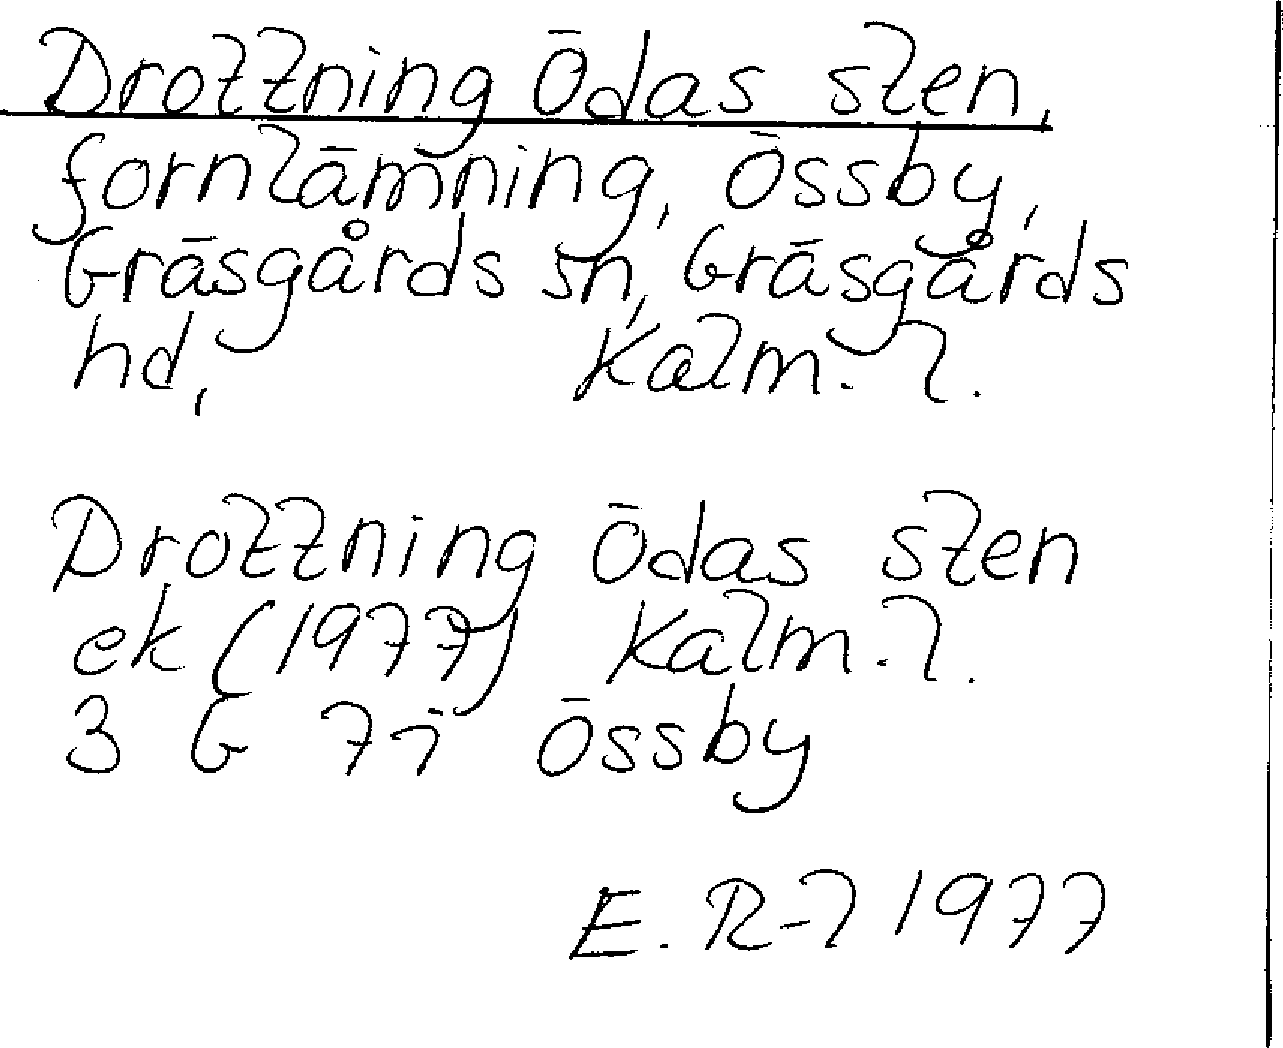 Drottning Ödas sten,
fornlämning, Össby,
Gräsgårds sn, Gräsgårds
hd, Kalm. l.
Drottning Ödas sten
ek (1977) Kalm. l.
3 G 7i Össby
E. R-l 1977